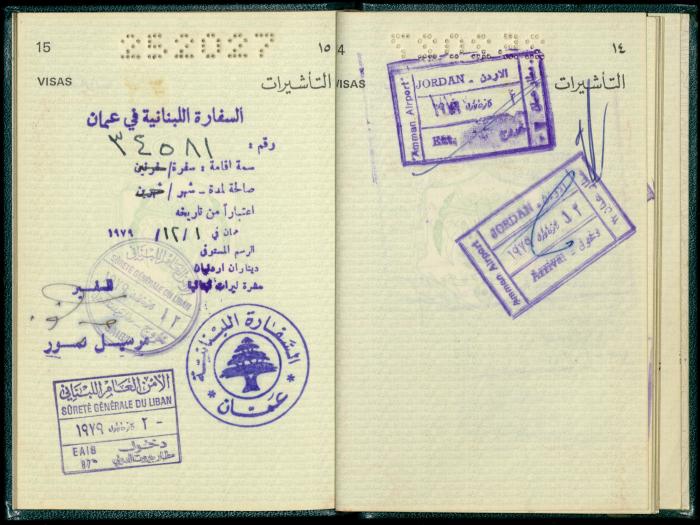 15
252027
١٥
VISAS
التأشيرات
السفارة اللبنانية في عمان
رقم : ٣٤٥٨١
سمة اقامة : سفرة/سفرتين
صالحة لمدة - شهر / شهرين
اعتباراً من تاريخه
عمان في ١٢/١/ ١٩٧٩
الرسم المستوفى
ديناران اردنيان
عشرة ليرات لبنانية
السفير
مرسيل نمور
SÛRETÉ GÉNÉRALE DU LIBAN
السفارة اللبنانية
عمان
الأمن العام اللبناني
SÛRETÉ GÉNÉRALE DU LIBAN
٢ - ١٩٧٩
EAIB
دخول
مطار بيروت الدولي
4
١٤
VISAS
التأشيرات
JORDAN - الاردن
Amman Airport
١٩٧٩
Ext.
خروج
JORDAN - الاردن
Amman Airport
١٢ ١٩٧٩
Arrival - دخول